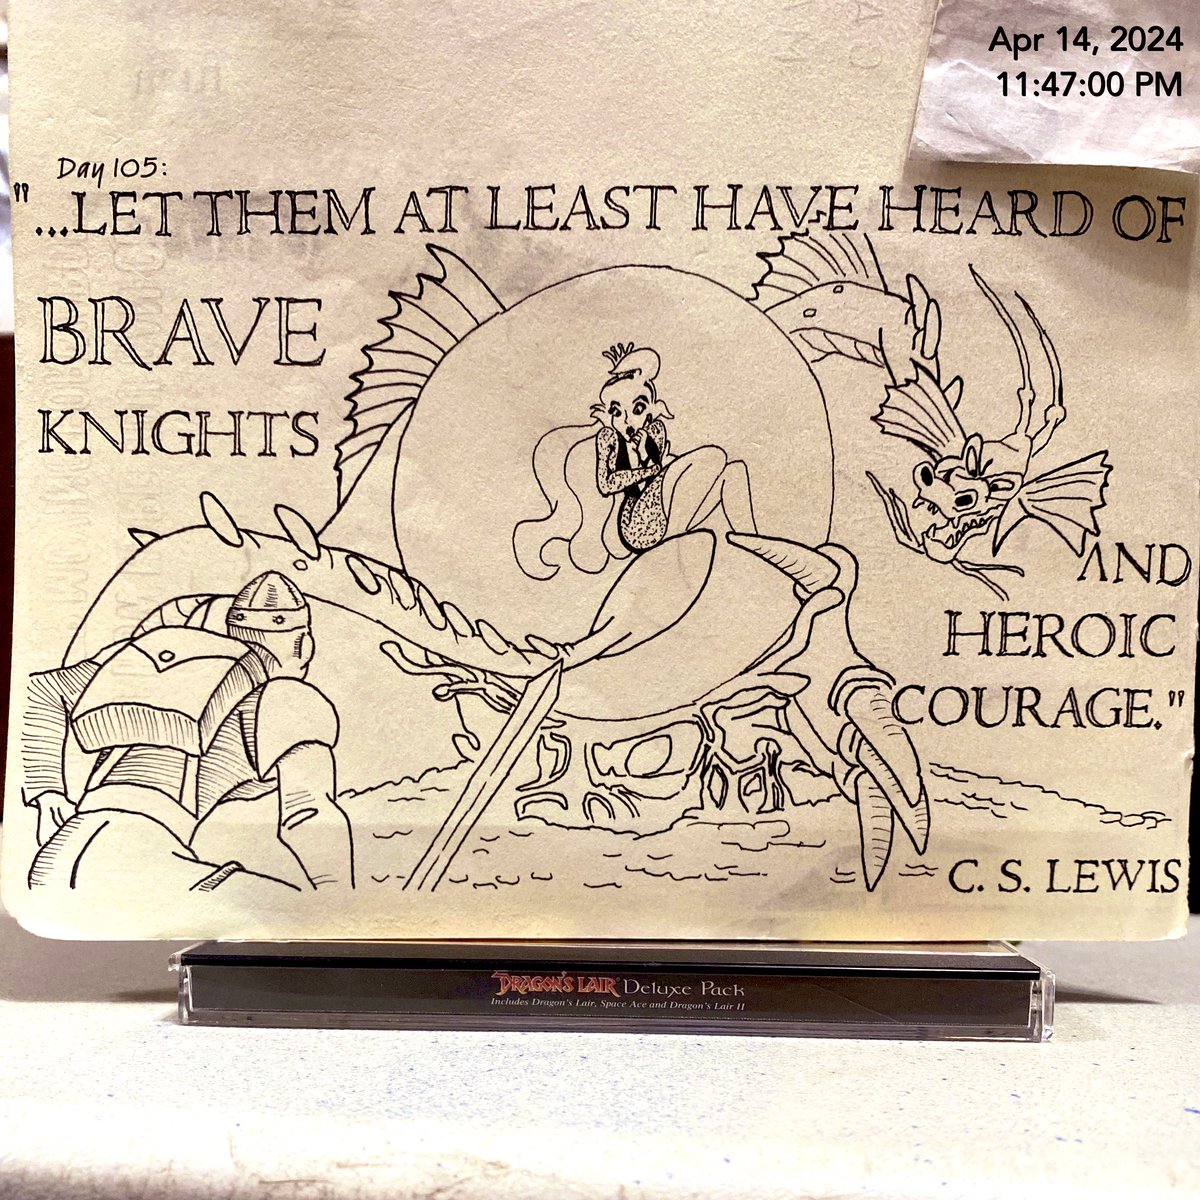 Apr 14, 2024
11:47:00 PM
Day 105:
"...LET THEM AT LEAST HAVE HEARD OF
BRAVE
KNIGHTS
AND
HEROIC
COURAGE."
C. S. LEWIS
DRAGON'S LAIR Deluxe Pack
Includes Dragon's Lair, Space Ace and Dragon's Lair II